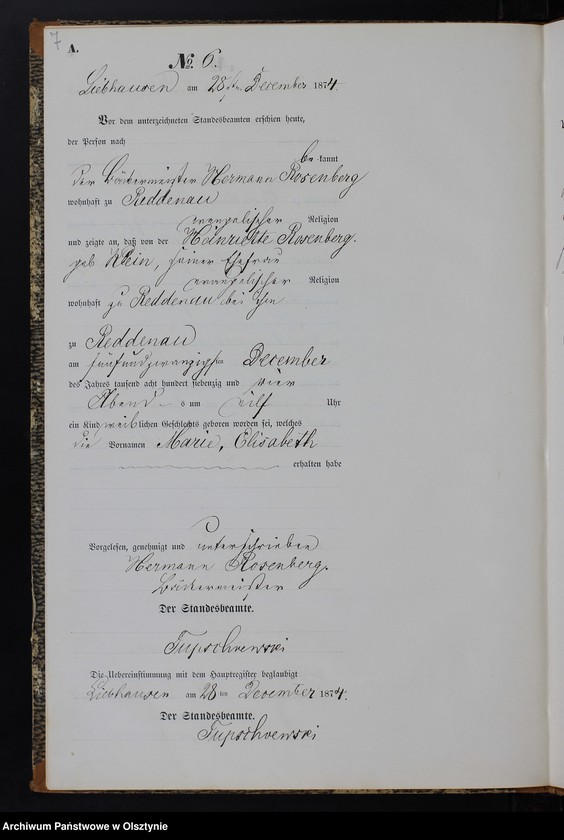 7
A.
No. 6.
Liebhausen am 28ten December 1874.
Vor dem unterzeichneten Standesbeamten erschien heute,
der Person nach
be-kannt
der Bäckermeister Hermann Rosenberg
wohnhaft zu Reddenau
evangelischer Religion
und zeigte an, daß von der Heinriette Rosenberg.
geb Klein, seiner Ehefrau
evangelischer Religion
wohnhaft zu Reddenau bei ihm
zu Reddenau
am fünfundzwanzigsten December
des Jahres tausend acht hundert siebenzig und vier
Abend s um eilf Uhr
ein Kind weiblichen Geschlechts geboren worden sei, welches
die Vornamen Marie, Elisabeth
erhalten habe
Vorgelesen, genehmigt und unterschrieben
Hermann Rosenberg.
Bäckermeister
Der Standesbeamte.
Die Uebereinstimmung mit dem Hauptregister beglaubigt
Liebhausen am 28ten December 1874.
Der Standesbeamte.
Archiwum Państwowe w Olsztynie